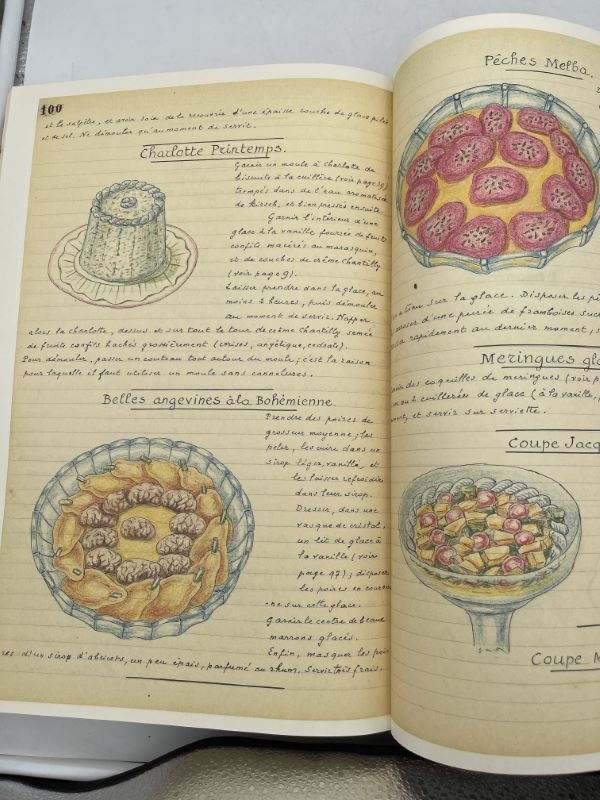 100
et le salpêtre, et avoir soin de la recouvrir d'une épaisse couche de glace pilée
et de sel. Ne démouler qu'au moment de servir.
Charlotte Printemps.
Garnir un moule à Charlotte de
biscuits à la cuillère (voir page 39)
trempés dans de l'eau aromatisée
de kirsch, et bien pressés ensuite.
Garnir l'intérieur d'une
glace à la vanille fourrée de fruits
confits macérés au marasquin,
et de couches de crème Chantilly
(voir page 9).
Laisser prendre dans la glace, au
moins 2 heures, puis démouler
au moment de servir. Napper
alors la charlotte, dessus et sur tout le tour de crème Chantilly semée
de fruits confits hachés grossièrement (cerises, angélique, cédrats).
Pour démouler, passer un couteau tout autour du moule; c'est la raison
pour laquelle il faut utiliser un moule sans cannelures.
Belles angevines à la Bohémienne.
Prendre des poires de
grosseur moyenne; les
peler, les cuire dans un
sirop léger, vanillé, et
les laisser refroidir
dans leur sirop.
Dresser, dans une
vasque de cristal,
un lit de glace à
la vanille (voir
page 97); disposer
les poires en couron
-ne sur cette glace.
Garnir le centre de beaux
marrons glacés.
Enfin, masquer les poi
res d'un sirop d'abricots, un peu épais, parfumé au rhum. Servir très frais.
Pêches Melba.
sur la glace. Disposer les pê
d'une purée de framboises suc
rapidement au dernier moment; s
Meringues gla
des coquilles de meringues (voir p
ou 2 cuillerées de glace (à la vanille,
et servir sur serviette.
Coupe Jacq
Coupe M